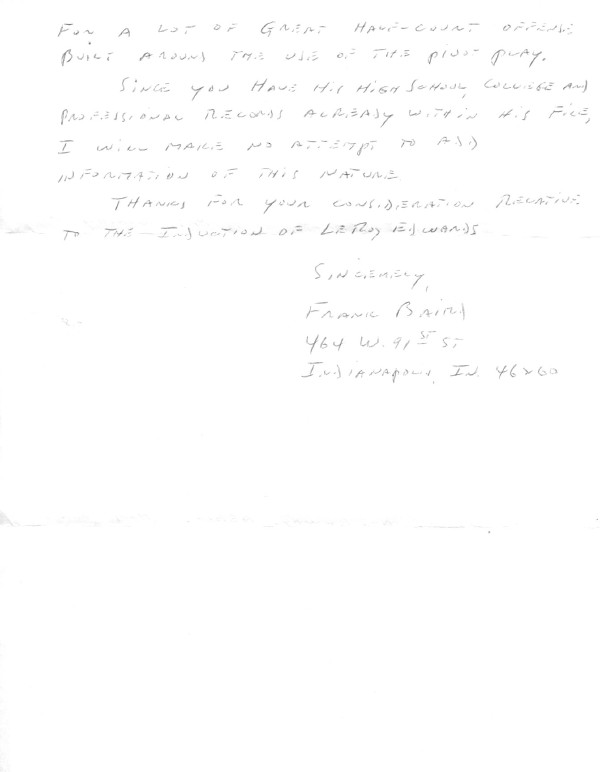 FOR A LOT OF GREAT HALF-COURT OFFENSE
BUILT AROUND THE USE OF THE PIVOT PLAY.
SINCE YOU HAVE HIS HIGH SCHOOL, COLLEGE AND
PROFESSIONAL RECORDS ALREADY WITHIN HIS FILE,
I WILL MAKE NO ATTEMPT TO ADD
INFORMATION OF THIS NATURE.
THANKS FOR YOUR CONSIDERATION RELATIVE
TO THE INDUCTION OF LEROY EDWARDS
SINCERELY,
FRANK BAIRD
464 W. 91ST ST
INDIANAPOLIS, IN. 46260